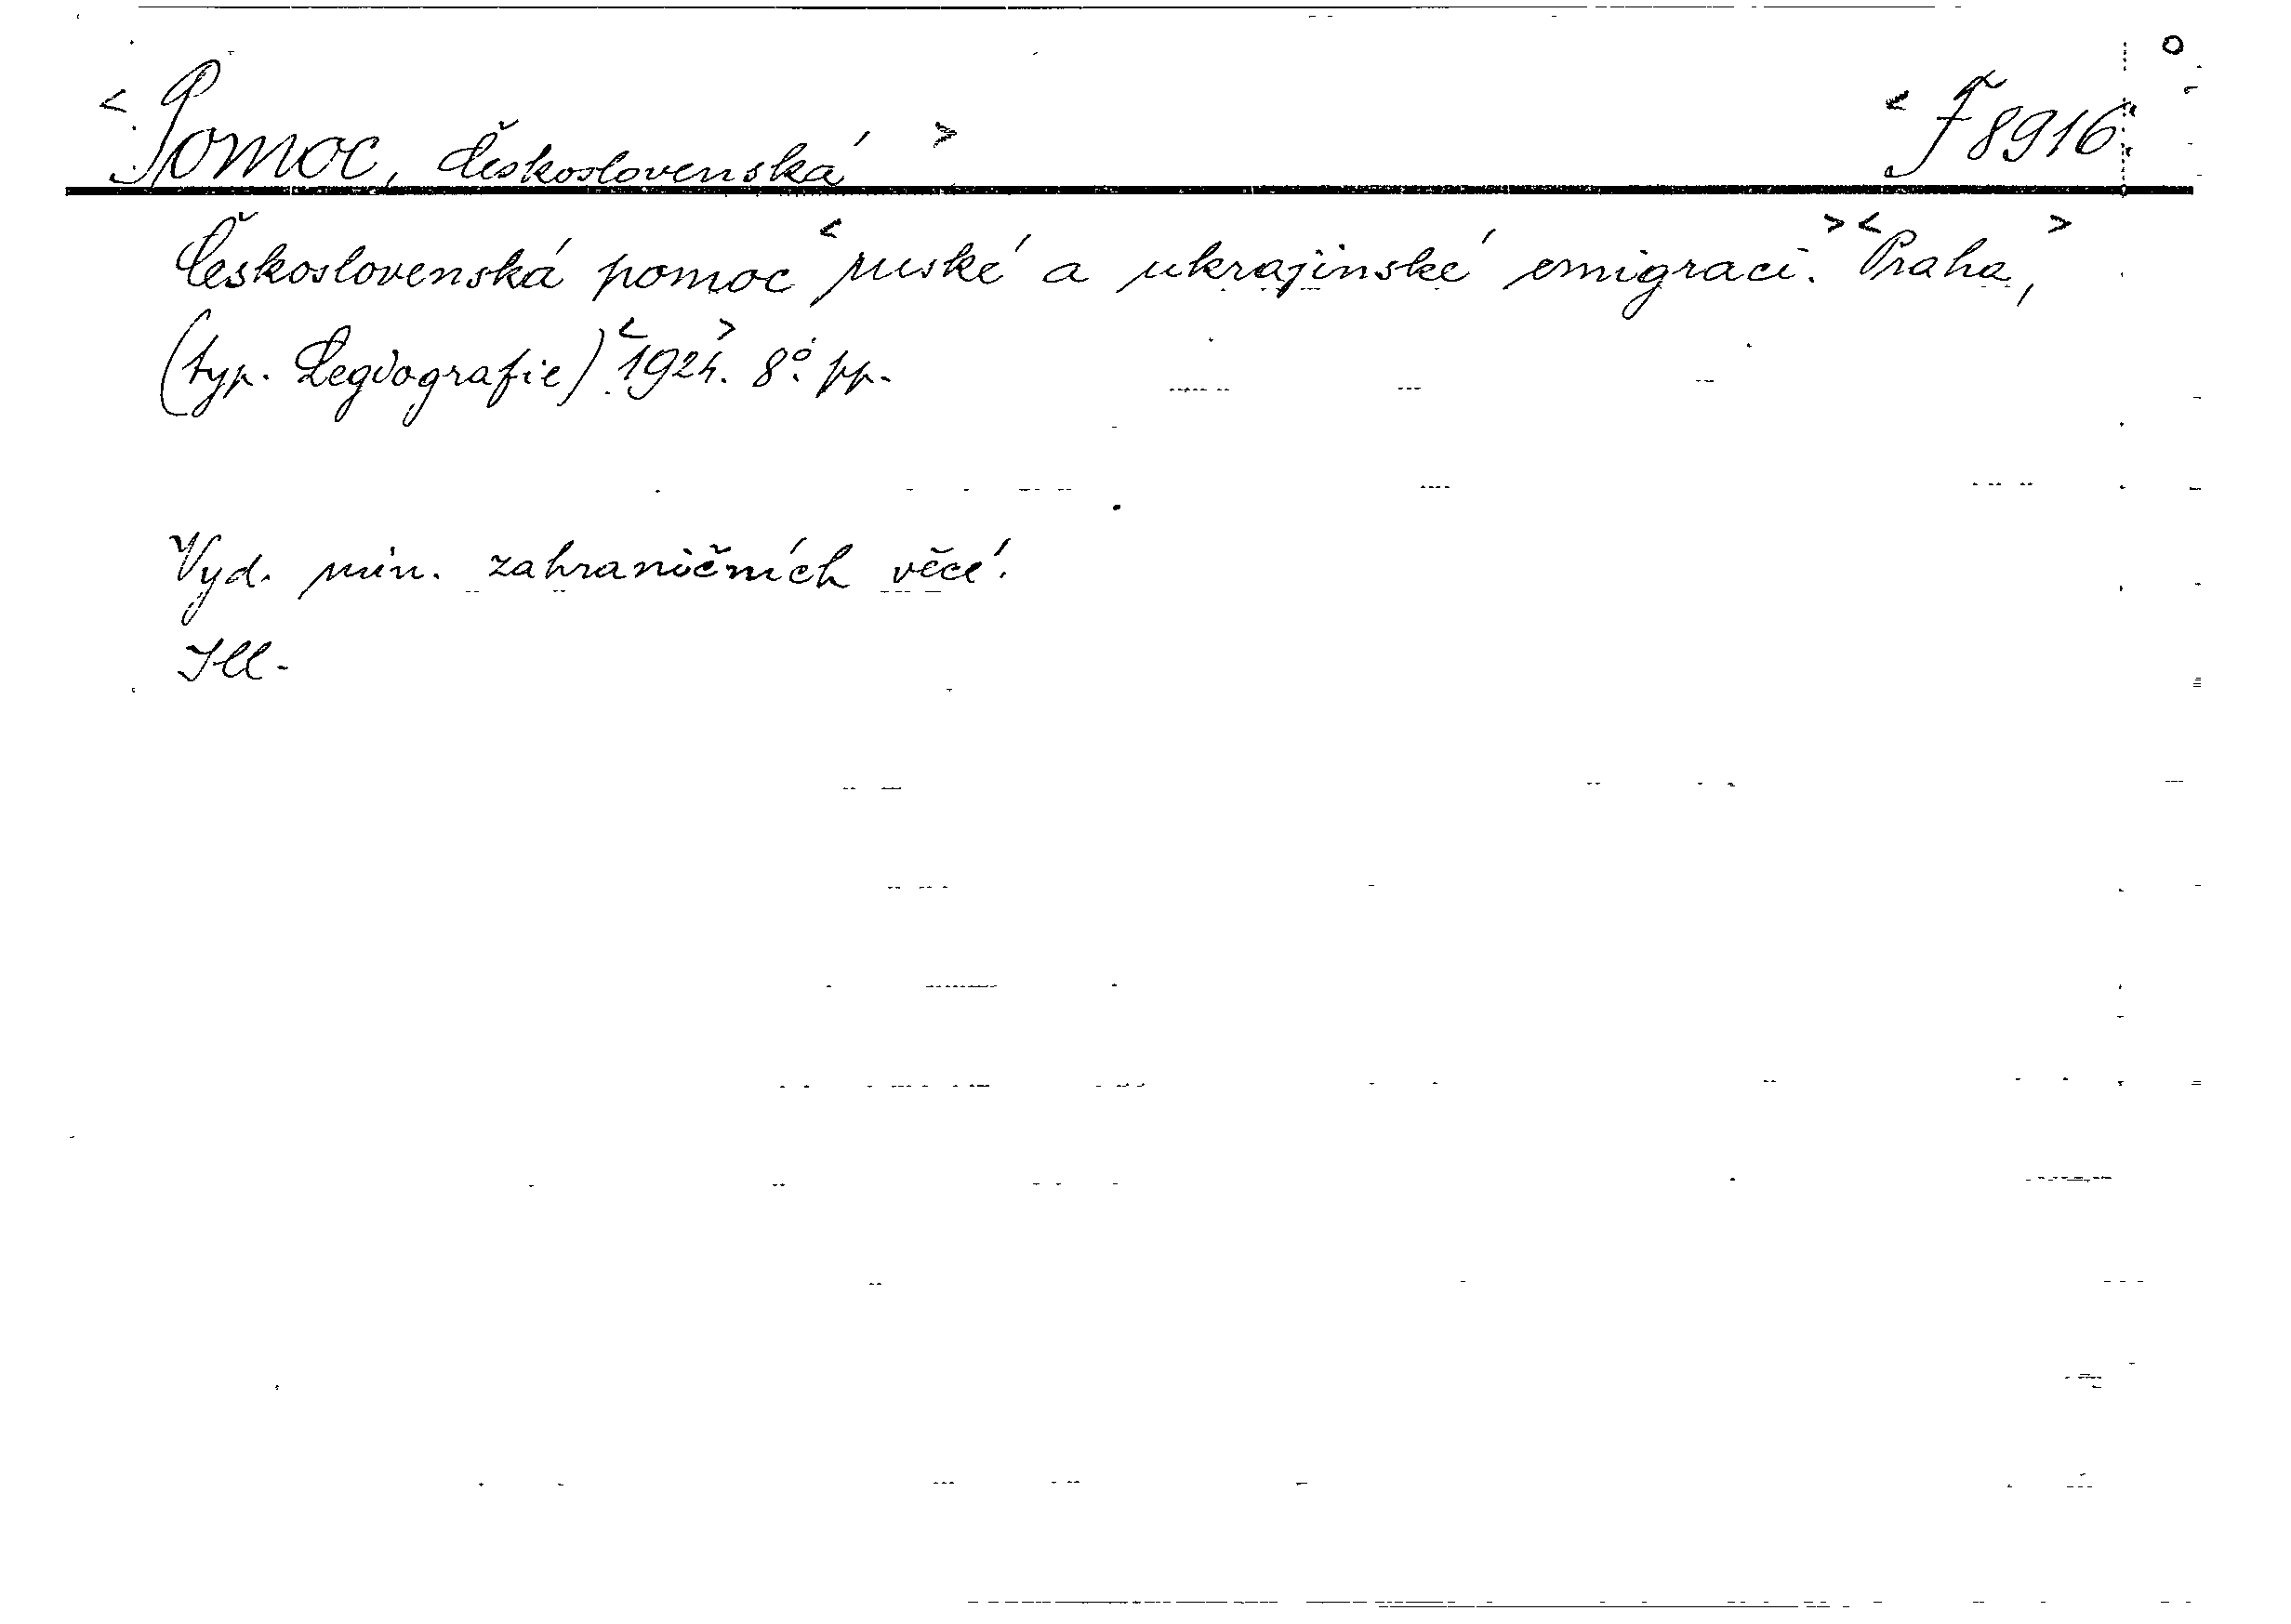 <Pomoc, československá> <F 8916.
Československá pomoc <ruské a ukrajinské emigraci.> <Praha,>
(typ. Legiografie) <1924.> 8° pp.
Vyd. min. zahraničních věcí.
Ill.